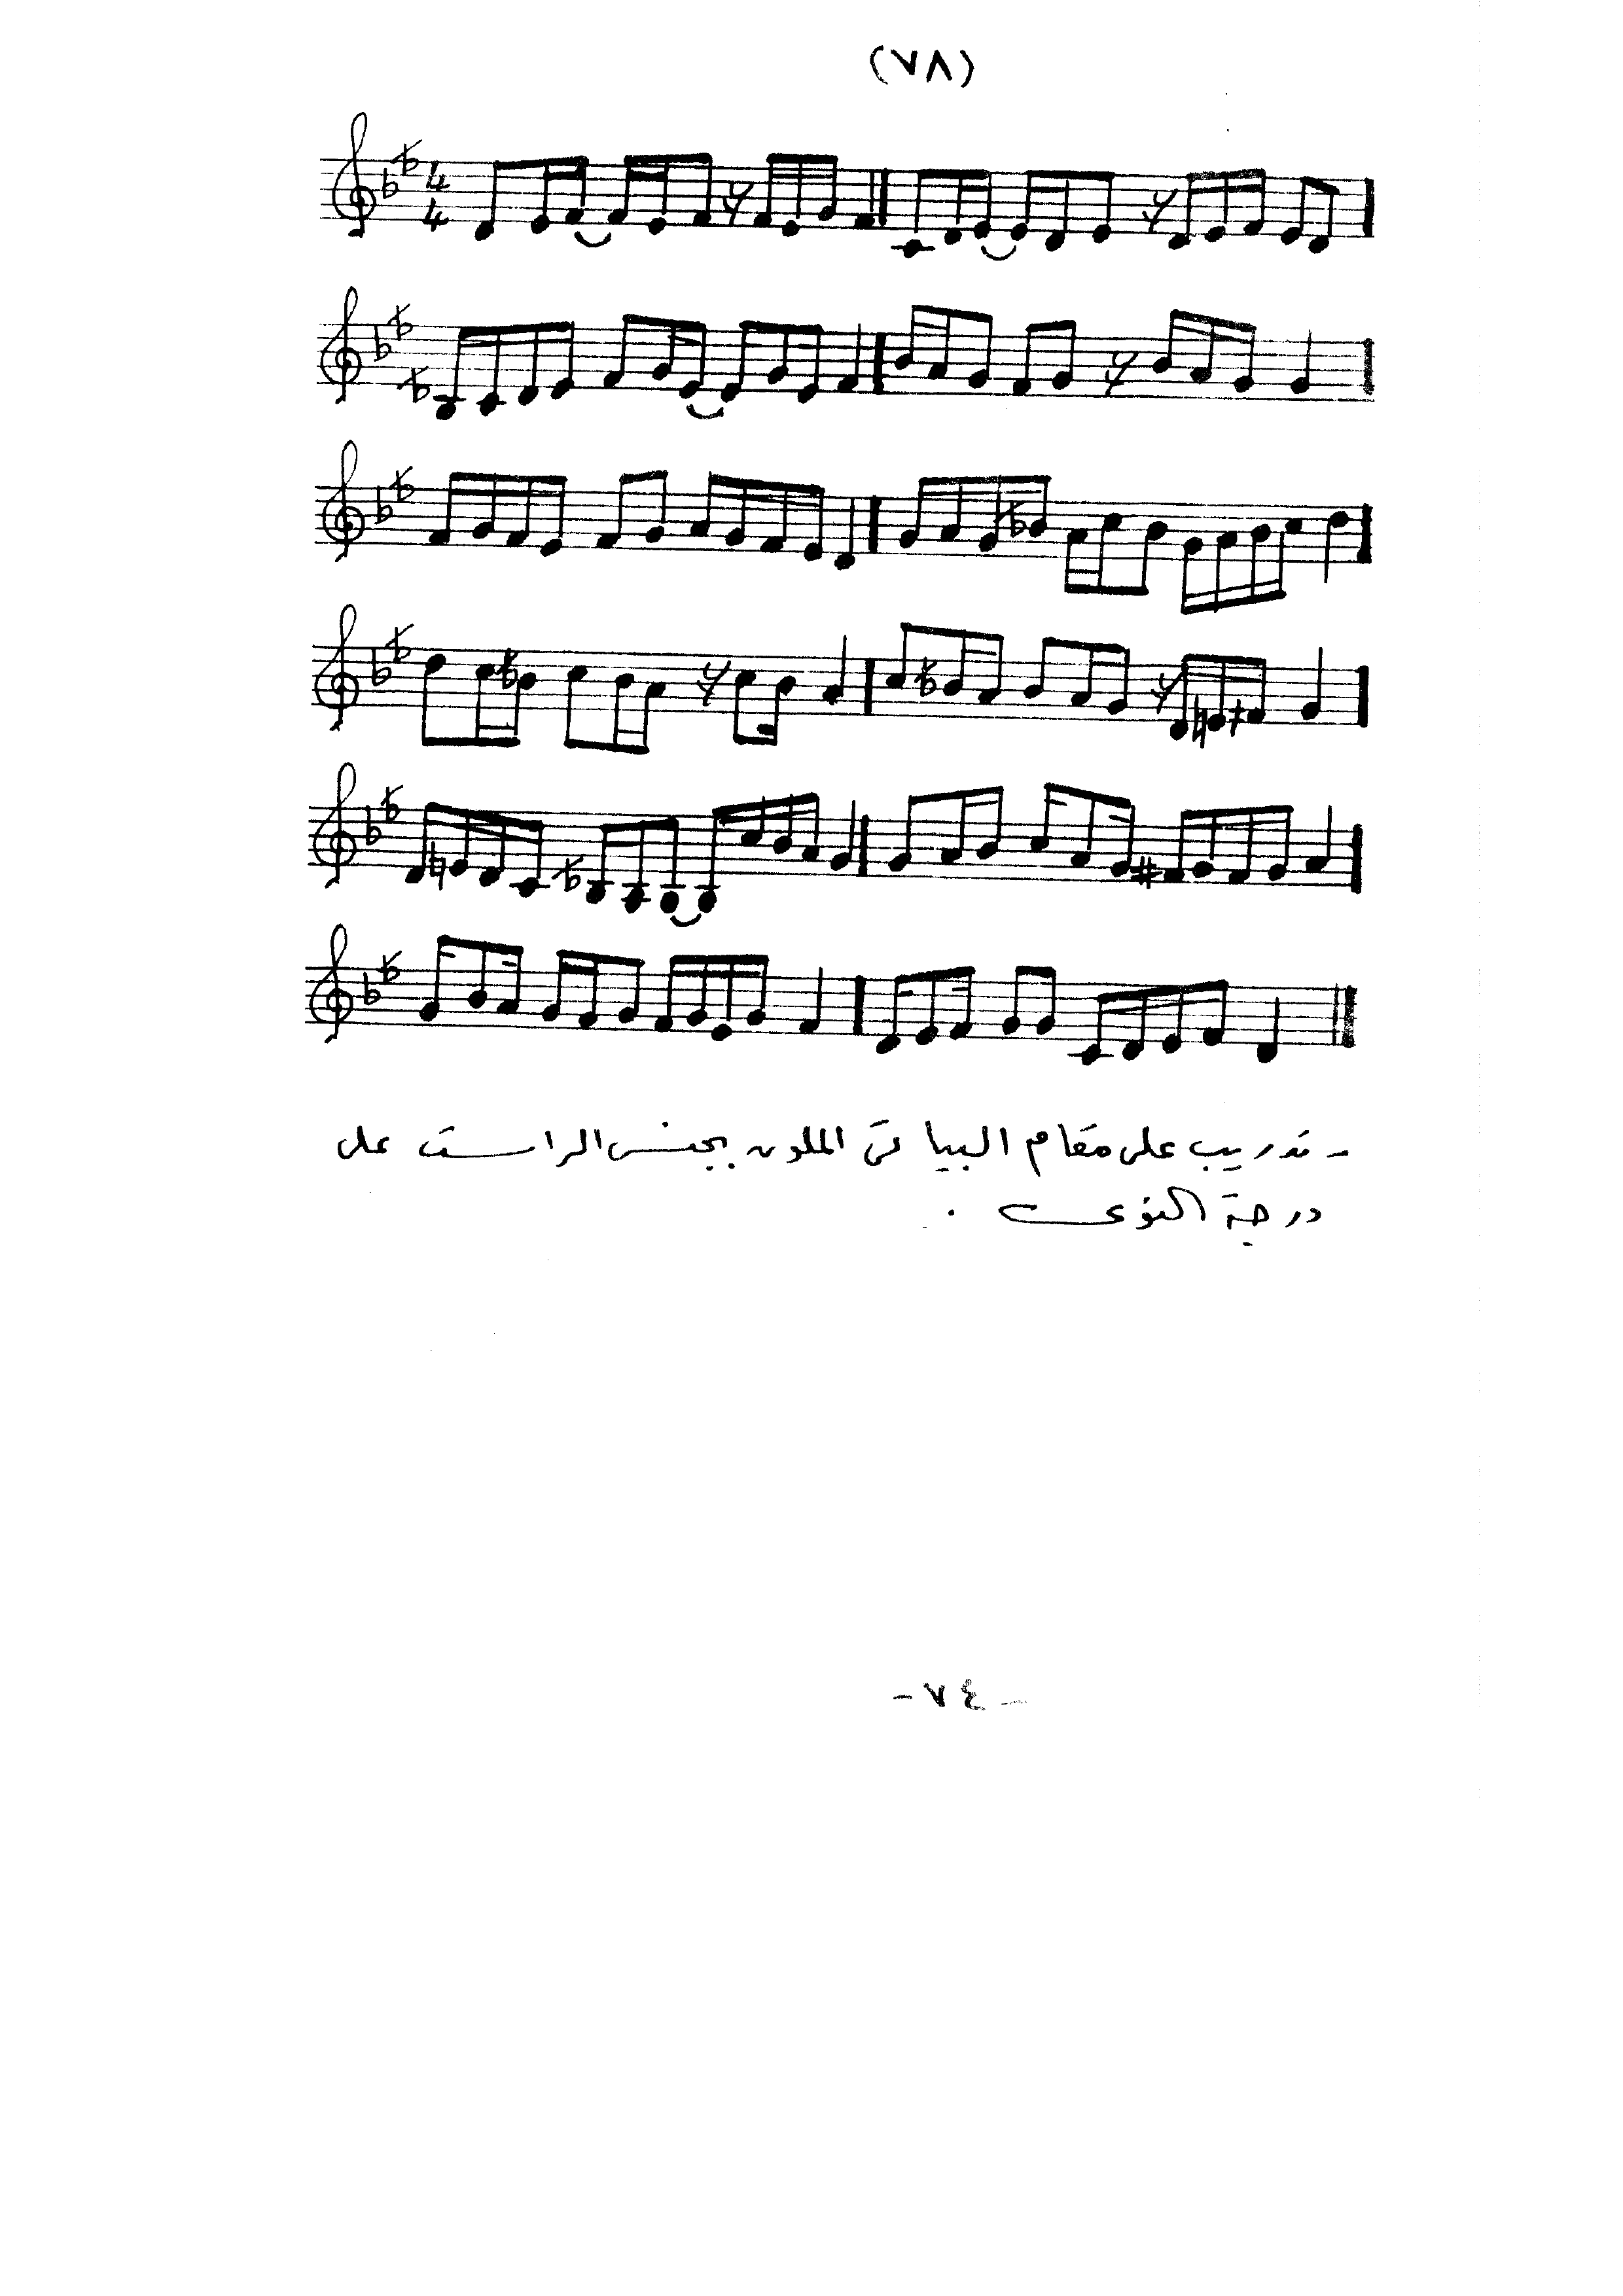 (٧٨)
4
4
- تدريب على مقام البياتى الملون بجنس الراست على
درجة النوى .
- ٧٤ -